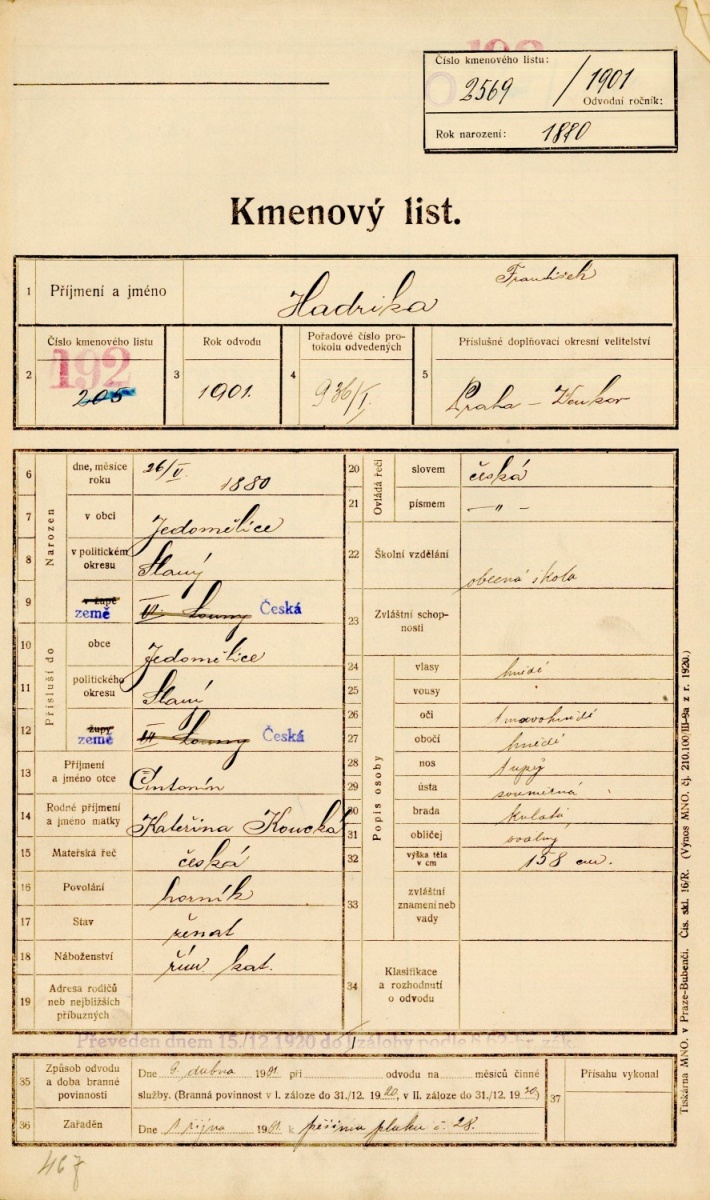 Číslo kmenového listu:
2569 / 1901
Odvodní ročník:
Rok narození: 1880
Kmenový list.
1 Příjmení a jméno Hadrika František
2 Číslo kmenového listu 3 Rok odvodu 4 Pořadové číslo pro-
tokolu odvedených 5 Příslušné doplňovací okresní velitelství
192
205 1901. 936/I. Praha –
6 Narozen dne, měsíce
roku 26/V. 1880
7 v obci Jedomělice
8 v politickém
okresu Slaný
9 v župě
země Louny Česká
10 Přísluší do obce Jedomělice
11 politického
okresu Slaný
12 župy
země Louny Česká
13 Příjmení
a jméno otce Antonín
14 Rodné příjmení
a jméno matky Kateřina Koucká
15 Mateřská řeč česká
16 Povolání horník
17 Stav ženat
18 Náboženství řím. kat.
19 Adresa rodičů
neb nejbližších
příbuzných
20 Ovládá řeči slovem česká
21 písmem – " –
22 Školní vzdělání obecná škola
23 Zvláštní schop-
nosti
Popis osoby
24 vlasy hnědé
25 vousy "
26 oči tmavohnědé
27 obočí hnědé
28 nos tupý
29 ústa souměrná
30 brada kulatá
31 obličej oválný
32 výška těla
v cm 158 cm.
33 zvláštní
znamení neb
vady
34 Klasifikace
a rozhodnutí
o odvodu
Převeden dnem 15./12. 1920 do I zálohy podle § 62 br. zák.
35 Způsob odvodu
a doba branné
povinnosti Dne 9. dubna 1901 při odvodu na měsíců činné
služby. (Branná povinnost v I. záloze do 31./12. 1920, v II. záloze do 31./12. 1930)
36 Zařaděn Dne 1 října 1901 k pěšímu pluku č. 28.
37 Přísahu vykonal
467
Tiskárna MNO. v Praze-Bubenči. Čís. skl. 16/R. (Výnos MNO. čj. 210.100/III-8a z r. 1920.)